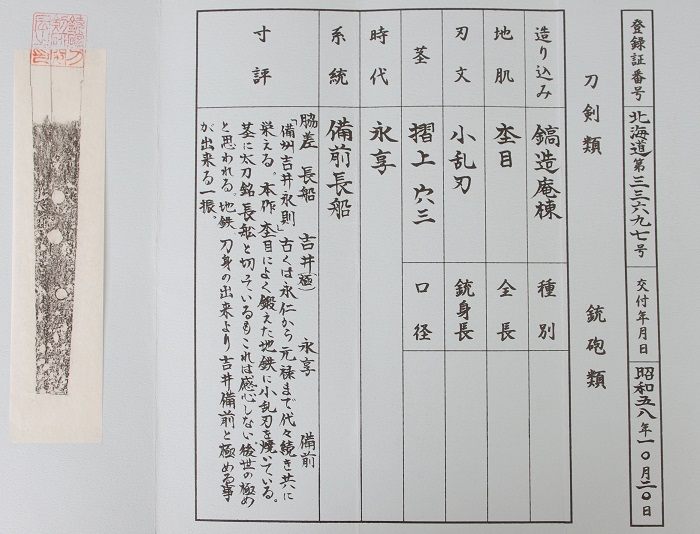 登録証番号 北海道 第三三六九七号 交付年月日 昭和五八年一〇月二〇日
刀剣類 銃砲類
造り込み 鎬造庵棟 種別
地肌 杢目 全長
刃文 小乱刃 銃身長
茎 摺上 穴三 口径
時代 永享
系統 備前長船
寸評
脇差 長船 吉井(極) 永享 備前
「備州吉井永則」古くは永仁から元禄まで代々続き共に
栄える。本作杢目によく鍛えた地鉄に小乱刃を焼いている。
茎に太刀銘長船と切っているもこれは感心しない。後世の極め
と思われる。地鉄、刀身の出来より吉井備前と極める事
が出来る一振。